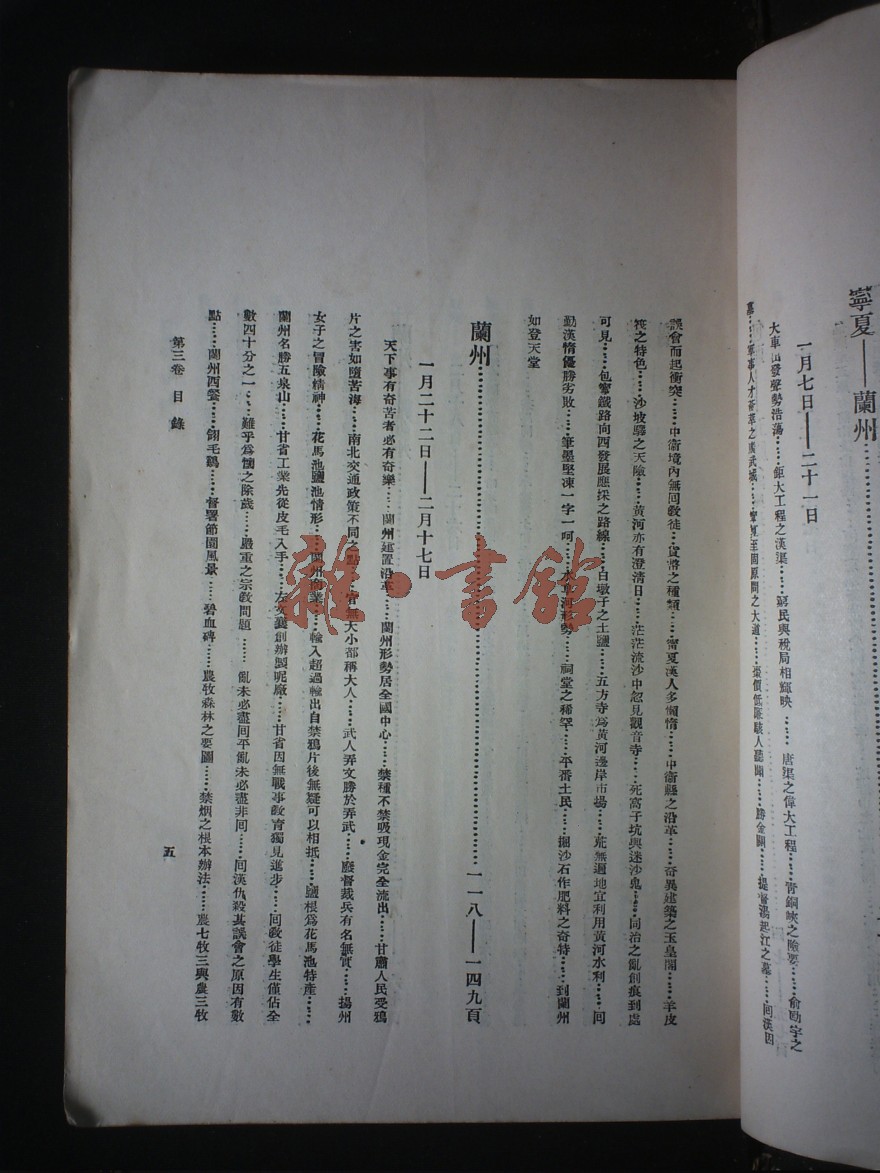 寧夏——蘭州
一月七日——二十一日
大車出發聲勢浩蕩……鉅大工程之漢渠……窮民與稅局相輝映……唐渠之偉大工程……青銅峽之險要……俞勛宇之
墓……軍事人才薈萃之廣武城……寧夏至固原間之大道……糧價低廉駭人聽聞……勝金關……提督湯起江之墓……回漢因
誤會而起衝突……中衛境內無回敎徒……貨幣之種類……寧夏漢人多懶惰……中衛縣之沿革……奇異建築之玉皇閣……羊皮
筏之特色……沙坡驛之天險……黃河亦有澄清日……茫茫流沙中忽見觀音寺……死窩子坑與迷沙鬼……同治之亂創痕到處
可見……包寧鐵路向西發展應採之路線……白墩子之土鹽……五方寺爲黃河邊岸市場……荒無邊地宜利用黃河水利……回
勤漢惰優勝劣敗……筆墨堅凍一字一呵……水阜河形勢……祠堂之稀罕……平番土民……掘沙石作肥料之奇特……到蘭州
如登天堂
蘭州……一一八——一四九頁
一月二十二日——二月十七日
天下事有奇苦者必有奇樂……蘭州建置沿革……蘭州形勢居全國中心……禁種不禁吸現金完全流出……甘肅人民受鴉
片之害如墮苦海……南北交通政策不同之點……官無大小部稱大人……武人弄文勝於弄武……廢督裁兵有名無實……揚州
女子之冒險精神……花馬池鹽池情形……蘭州商業……輸入超過輸出自禁鴉片後無疑可以相抵……鹽根爲花馬池特產……
蘭州名勝五泉山……甘省工業先從皮毛入手……左文襄創辦製呢廠……甘省因無戰事敎育獨見進步……回敎徒學生僅佔全
數四十分之一……難乎爲懷之除歲……嚴重之宗敎問題……亂未必盡回平亂未必盡非回……回漢仇殺其誤會之原因有數
點……蘭州西餐……翎毛鷄……督署節園風景……碧血碑……農牧森林之要圖……禁烟之根本辦法……農七牧三與農三牧
第三卷 目錄
五
雜·書館